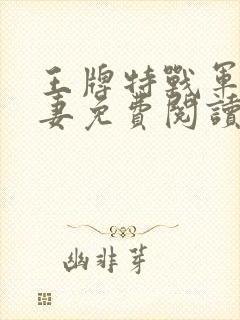 王牌特戰軍
妻免費閱讀
幽非芽